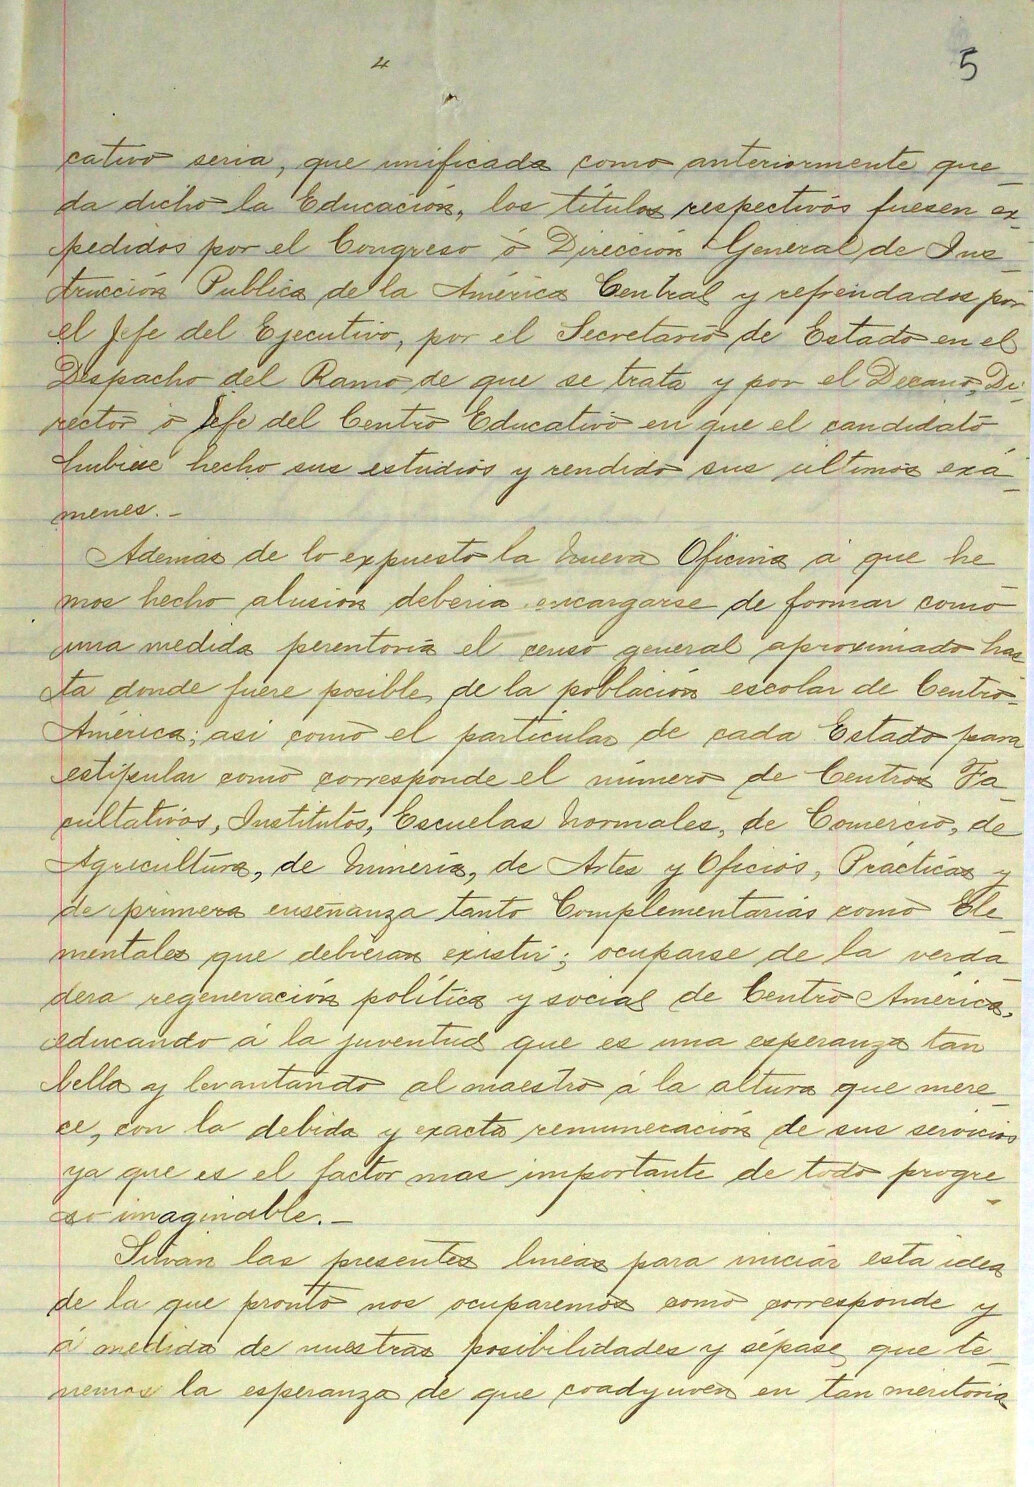 4
5
cativo seria, que unificada como anteriormente que_
da dicho la Educación, los títulos respectivos fuesen ex_
pedidos por el Congreso ó Dirección General de Ins_
trucción Publica de la América Central y refrendados por
el Jefe del Ejecutivo, por el Secretario de Estado en el
Despacho del Ramo de que se trata y por el Decano, Di_
rector ó Jefe del Centro Educativo en que el candidato
hubiese hecho sus estudios y rendido sus últimos exá_
menes._
Ademas de lo expuesto la Nueva Oficina á que he_
mos hecho alusion deberia encargarse de formar como
una medida perentoria el censo general aproximado has_
ta donde fuere posible, de la población escolar de Centro_
América; asi como el particular de cada Estado para
estipular como corresponde el número de Centros Fa_
cultativos, Institutos, Escuelas Normales, de Comercio, de
Agricultura, de Mineria, de Artes y Oficios, Prácticas y
de primera enseñanza tanto Complementarias como Ele_
mentales que debieran existir; ocuparse de la verda_
dera regeneración política y social de Centro América,
educando á la juventud que es una esperanza tan
bella y levantando al maestro á la altura que mere_
ce, con la debida y exacta remuneración de sus servicios
ya que es el factor mas importante de todo progre_
so imaginable._
Sirvan las presentes lineas para iniciar esta idea
de la que pronto nos ocuparemos como corresponde y
á medida de nuestras posibilidades y sépase que te_
nemos la esperanza de que coadyuven en tan meritoria